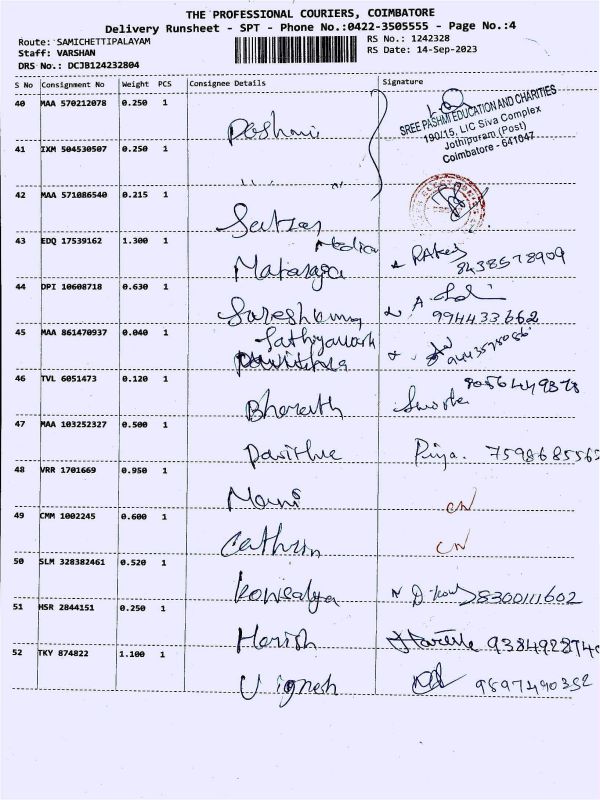 THE PROFESSIONAL COURIERS, COIMBATORE
Delivery Runsheet - SPT - Phone No.:0422-3505555 - Page No.:4
Route: SAMICHETTIPALAYAM
RS No.: 1242328
Staff: VARSHAN
RS Date: 14-Sep-2023
DRS No.: DCJB124232804
S No Consignment No Weight PCS Consignee Details Signature
40 MAA 570212078 0.250 1
SREE PASHMI EDUCATION AND CHARITIES
190/15, LIC Siva Complex
Jothipuram (Post)
Coimbatore - 641047
41 IXM 504530507 0.250 1
42 MAA 571086540 0.215 1
43 EDQ 17539162 1.300 1
Media
8438578909
44 DPI 10608718 0.630 1
Sureshkumar
45 MAA 861470937 0.040 1
46 TVL 6051473 0.120 1
Bharath
47 MAA 103252327 0.500 1
Pavithra Priya.
48 VRR 1701669 0.950 1
Mani CN
49 CMM 1002245 0.600 1
Cathrin CN
50 SLM 328382461 0.520 1
Kowsalya 8300111602
51 HSR 2844151 0.250 1
Harish
52 TKY 874822 1.100 1
Vignesh